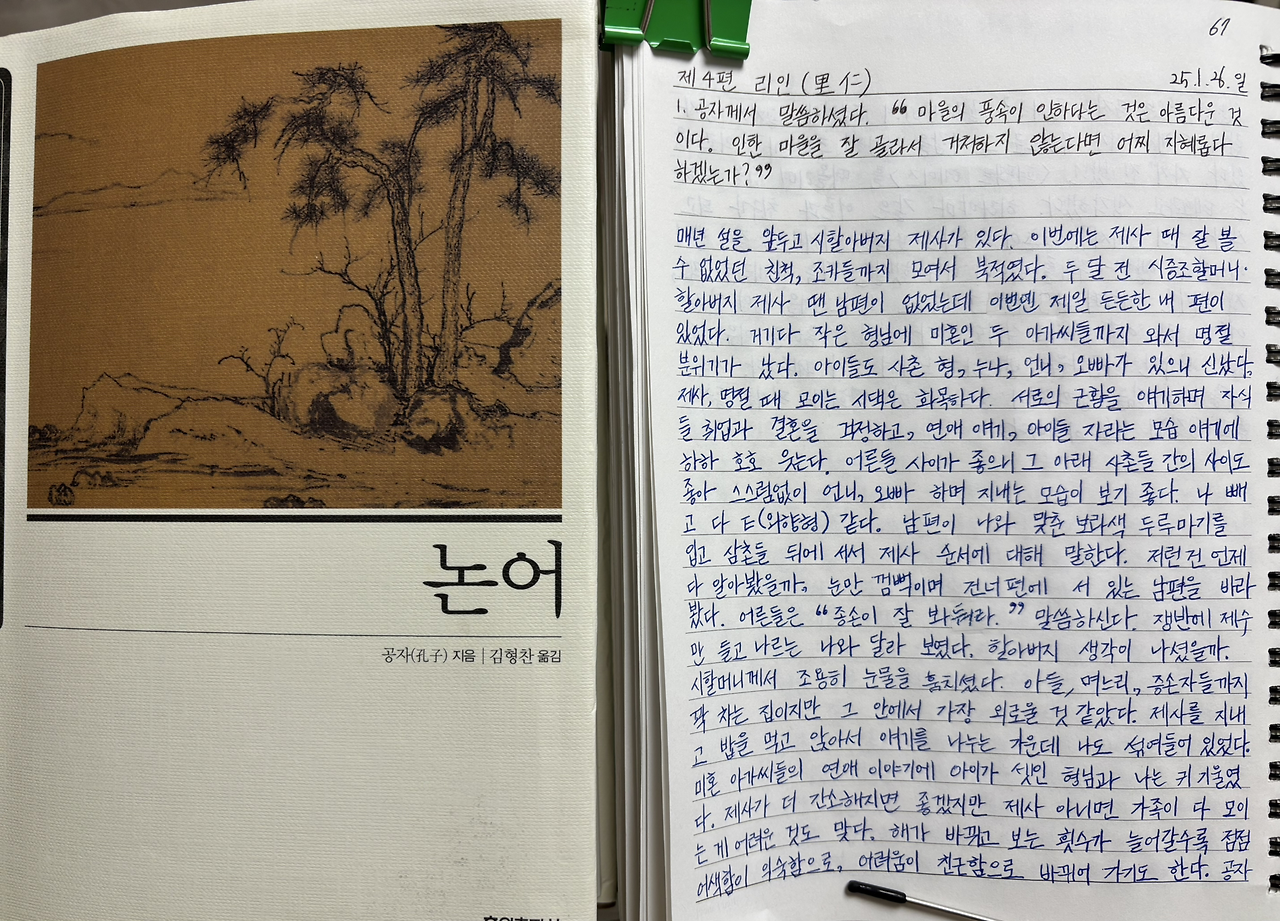 논어
공자(孔子) 지음 | 김형찬 옮김
67
제4편 리인(里仁) 25.1.26.일
1. 공자께서 말씀하셨다. "마을의 풍속이 인하다는 것은 아름다운 것
이다. 인한 마을을 잘 골라서 거처하지 않는다면 어찌 지혜롭다
하겠는가?"
매년 설을 앞두고 시할아버지 제사가 있다. 이번에는 제사 때 잘 볼
수 없었던 친척, 조카들까지 모여서 북적였다. 두 달 전 시증조할머니·
할아버지 제사 땐 남편이 없었는데 이번엔 제일 든든한 내 편이
있었다. 거기다 작은 형님에 미혼인 두 아가씨들까지 와서 명절
분위기가 났다. 아이들도 사촌 형, 누나, 언니, 오빠가 있으니 신났다.
제사, 명절 때 모이는 시댁은 화목하다. 서로의 근황을 얘기하며 자식
들 취업과 결혼을 걱정하고, 연애 얘기, 아이들 자라는 모습 얘기에
하하 호호 웃는다. 어른들 사이가 좋으니 그 아래 사촌들 간의 사이도
좋아 스스럼없이 언니, 오빠 하며 지내는 모습이 보기 좋다. 나 빼
고 다 E(외향형) 같다. 남편이 나와 맞춘 보라색 두루마기를
입고 삼촌들 뒤에 서서 제사 순서에 대해 말한다. 저런 건 언제
다 알아봤을까, 눈만 껌뻑이며 건너편에 서 있는 남편을 바라
봤다. 어른들은 "종손이 잘 봐둬라." 말씀하신다. 쟁반에 제수
만 들고 나르는 나와 달라 보였다. 할아버지 생각이 나셨을까.
시할머니께서 조용히 눈물을 훔치셨다. 아들, 며느리, 증손자들까지
꽉 차는 집이지만 그 안에서 가장 외로울 것 같았다. 제사를 지내
고 밥을 먹고 앉아서 얘기를 나누는 가운데 나도 섞여들어 있었다.
미혼 아가씨들의 연애 이야기에 아이가 셋인 형님과 나는 귀 기울였
다. 제사가 더 간소해지면 좋겠지만 제사 아니면 가족이 다 모이
는 게 어려운 것도 맞다. 해가 바뀌고 보는 횟수가 늘어갈수록 점점
어색함이 익숙함으로, 어려움이 친근함으로 바뀌어 가기도 한다. 공자